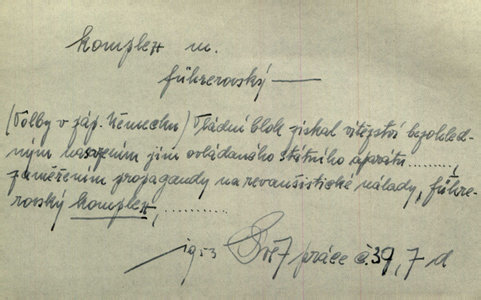 komplex m.
führerovský —
(Volby v záp. Německu) Vládní blok získal vítězství bezohled-
ným nasazením jím ovládaného státního aparátu .........,
zaměřením propagandy na revanšistické nálady, führe-
rovský komplex, ..........
1953 Svět práce č. 39, 7 d